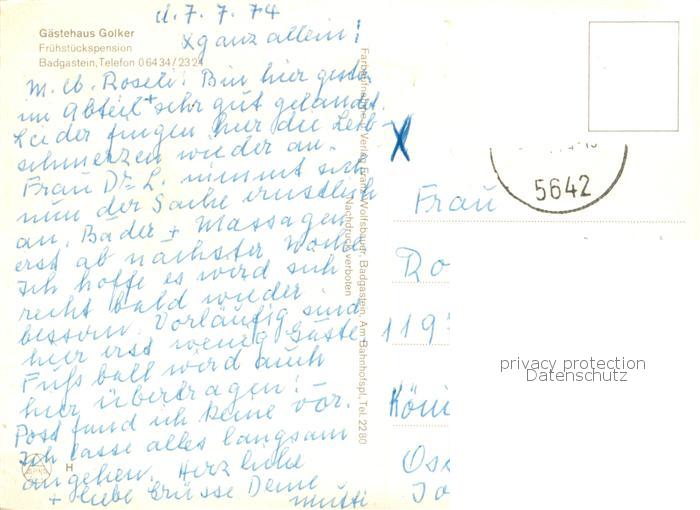 d. 7. 7. 74
Gästehaus Golker
Frühstückspension
Badgastein, Telefon 06434/2324
x ganz allein!
M. lb. Roseli! Bin hier gestern
im Abteil + sehr gut gelandet.
Leider fingen hier die Leib-
schmerzen wieder an.
Frau Dr. L. nimmt sich
nun der Sache ernstlich
an. Bäder + Massagen
erst ab nächster Woche
Ich hoffe es wird sich
recht bald wieder
bessern. Vorläufig sind
hier erst wenig Gäste
Fußball wird auch
hier übertragen!
Post fand ich keine vor.
Ich lasse alles langsam
angehen. Herzliche
+ liebe Grüsse Deine
Mutti
H
Verlag Franz Wolfsbauer, Badgastein, Am Bahnhofspl., Tel. 2280
Nachdruck verboten
X
5642
Frau
Ro
119
Köni
privacy protection
Datenschutz